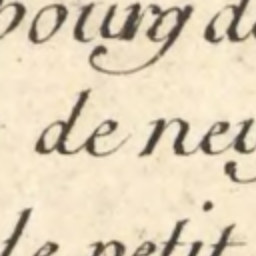 bourg de
de ney
le petit